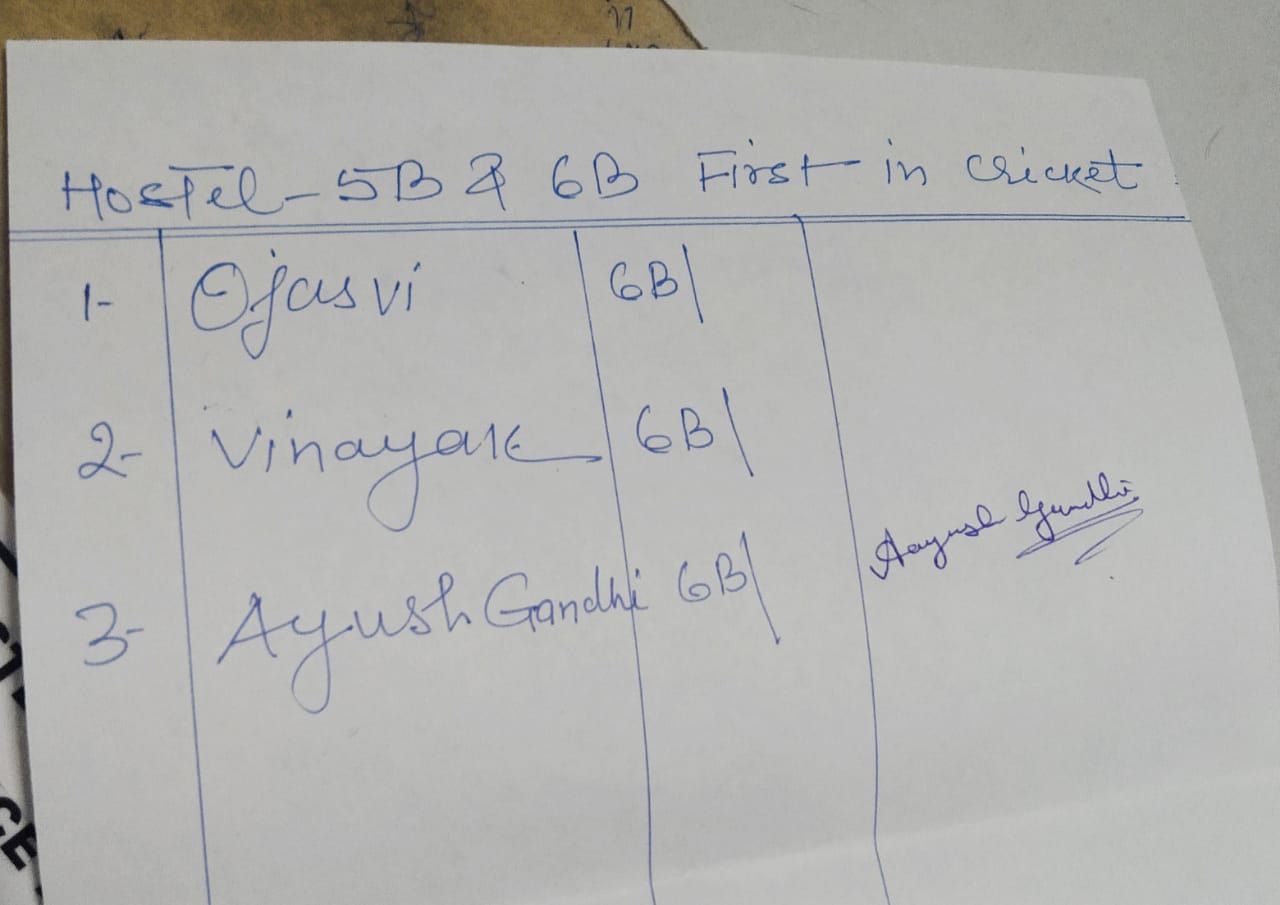 Hostel - 5B & 6B First in cricket
1- Ojasvi 6B|
2- Vinayak 6B|
3- Ayush Gandhi 6B| Aayush Gandhi